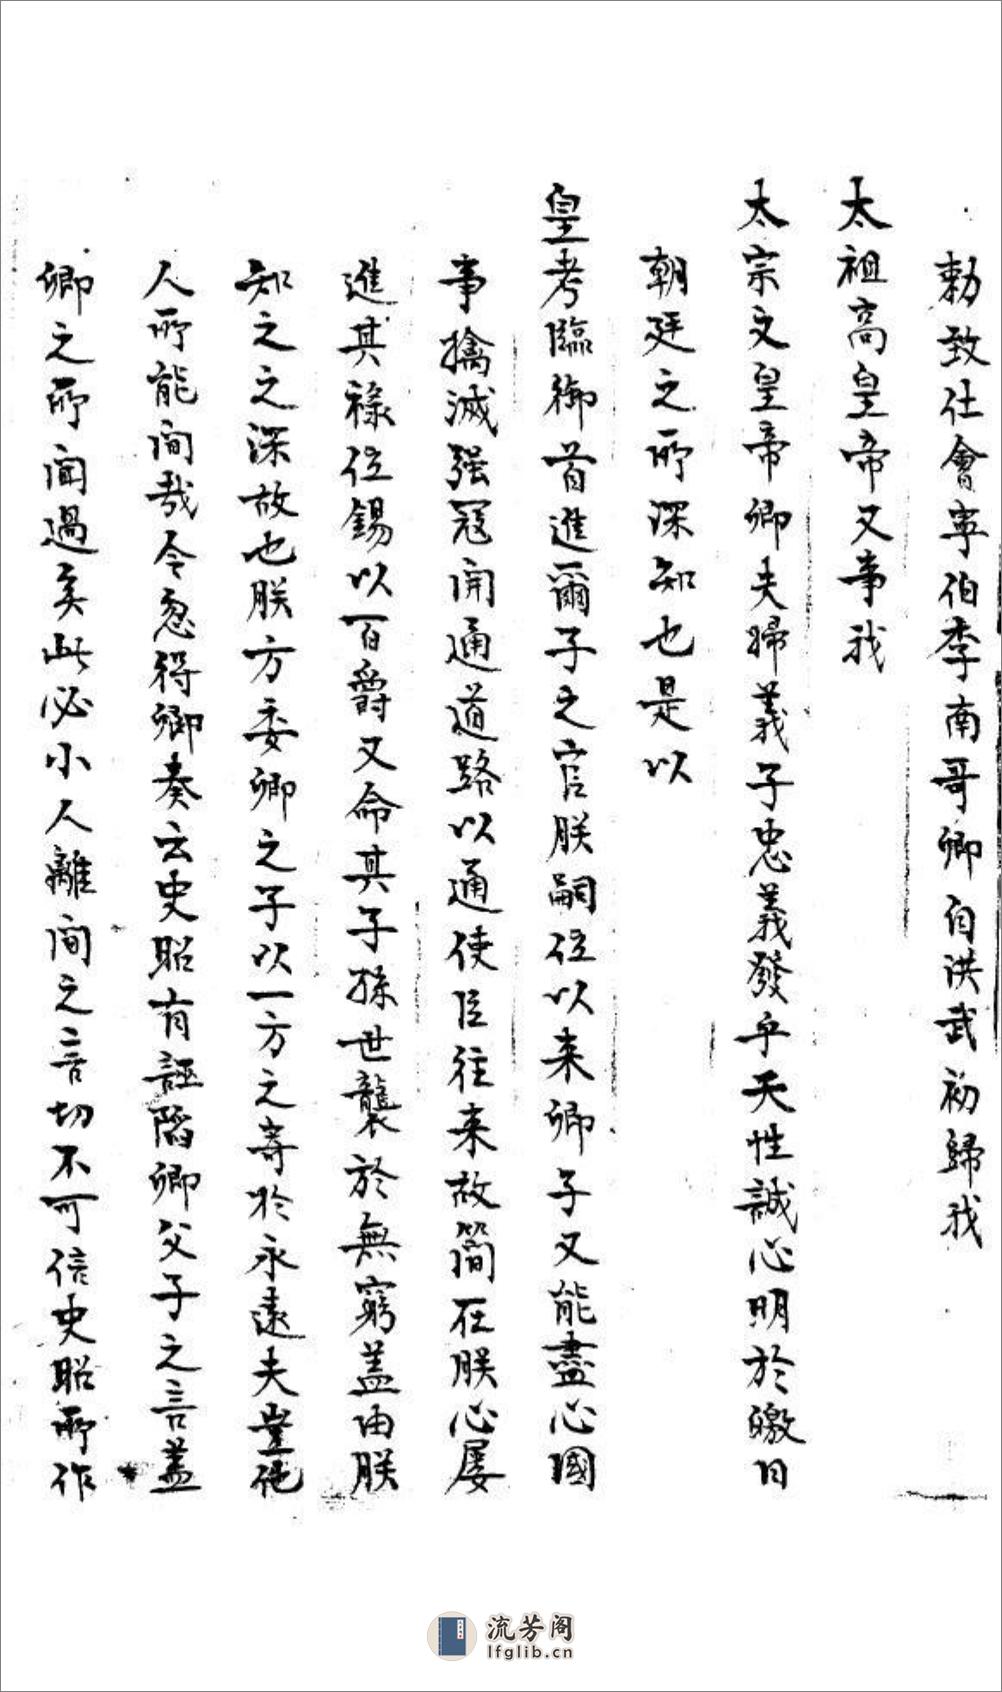 勅致仕會寧伯李南哥卿自洪武初歸我
太祖高皇帝又事我
太宗文皇帝卿夫婦義子忠義發乎天性誠心明於皦日
朝廷之所深知也是以
皇考臨御首進爾子之官朕嗣位以来卿子又能盡心國
事擒滅强冦開通道路以通使臣往来故簡在朕心屡
進其祿位錫以一百爵又命其子孫世襲於無窮盖由朕
知之之深故也朕方委卿之子以一方之寄於永遠夫豈他
人所能間哉今忽得卿奏云史昭有誣陷卿父子之言盖
卿之所聞過矣此必小人離間之言切不可信史昭所作
流芳阁
lfglib.cn